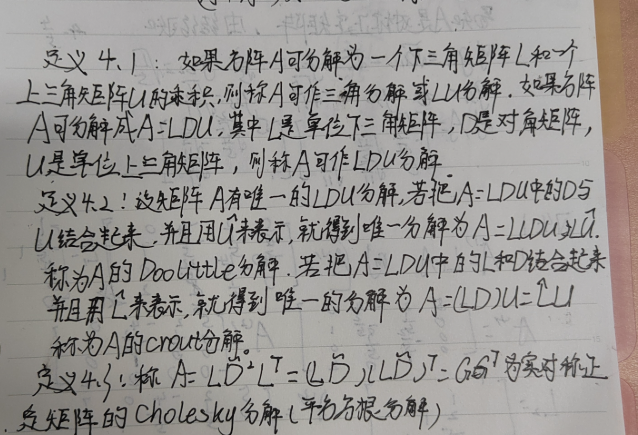 定义4.1：如果方阵A可分解为一个下三角矩阵L和一个
上三角矩阵U的乘积,则称A可作三角分解或LU分解.如果方阵
A可分解成A=LDU,其中L是单位下三角矩阵,D是对角矩阵,
U是单位上三角矩阵,则称A可作LDU分解.
定义4.2：设矩阵A有唯一的LDU分解,若把A=LDU中的D与
U结合起来,并且用Û来表示,就得到唯一分解为A=L(DU)=LÛ.
称为A的Doolittle分解.若把A=LDU中的L和D结合起来
并且用L̂来表示,就得到唯一的分解为A=(LD)U=L̂U
称为A的crout分解。
定义4.3：称A=LD̃²Lᵀ=(LD̃)(LD̃)ᵀ=GGᵀ为实对称正
定矩阵的Cholesky分解(平方根分解)